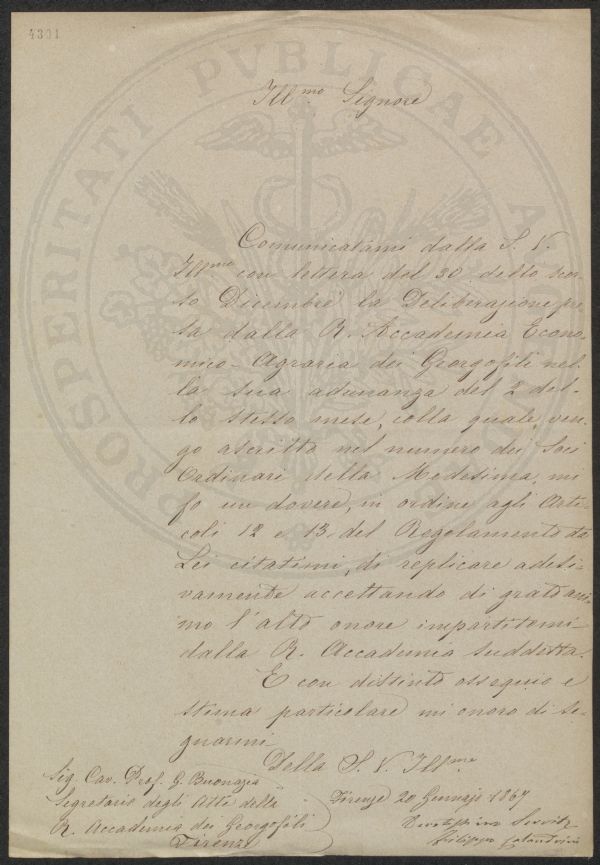 4301
PROSPERITATI PVBLICAE
Ill.mo Signore
Comunicatami dalla S. V.
Ill.ma con lettera del 30 dello scor-
so Dicembre la Deliberazione pre
sa dalla R. Accademia Econo-
mico-Agraria dei Georgofili nel-
la sua adunanza del 2 del-
lo stesso mese, colla quale ven-
go ascritto nel numero dei Soci
Ordinari della Medesima, mi
fo un dovere, in ordine agli Arti-
coli 12 e 13. del Regolamento da
Lei citatimi, di replicare adesi-
vamente accettando di grato ani-
mo l'alto onore impartitomi
dalla R. Accademia suddetta.
E con distinto ossequio e
stima particolare mi onoro di se-
gnarmi
Della S. V. Ill.ma
Sig. Cav. Prof. G. Buonazia
Segretario degli Atti della
R. Accademia dei Georgofili
Firenze
Firenze 20 Gennajo 1867
Servitore
Filippo Calandrini